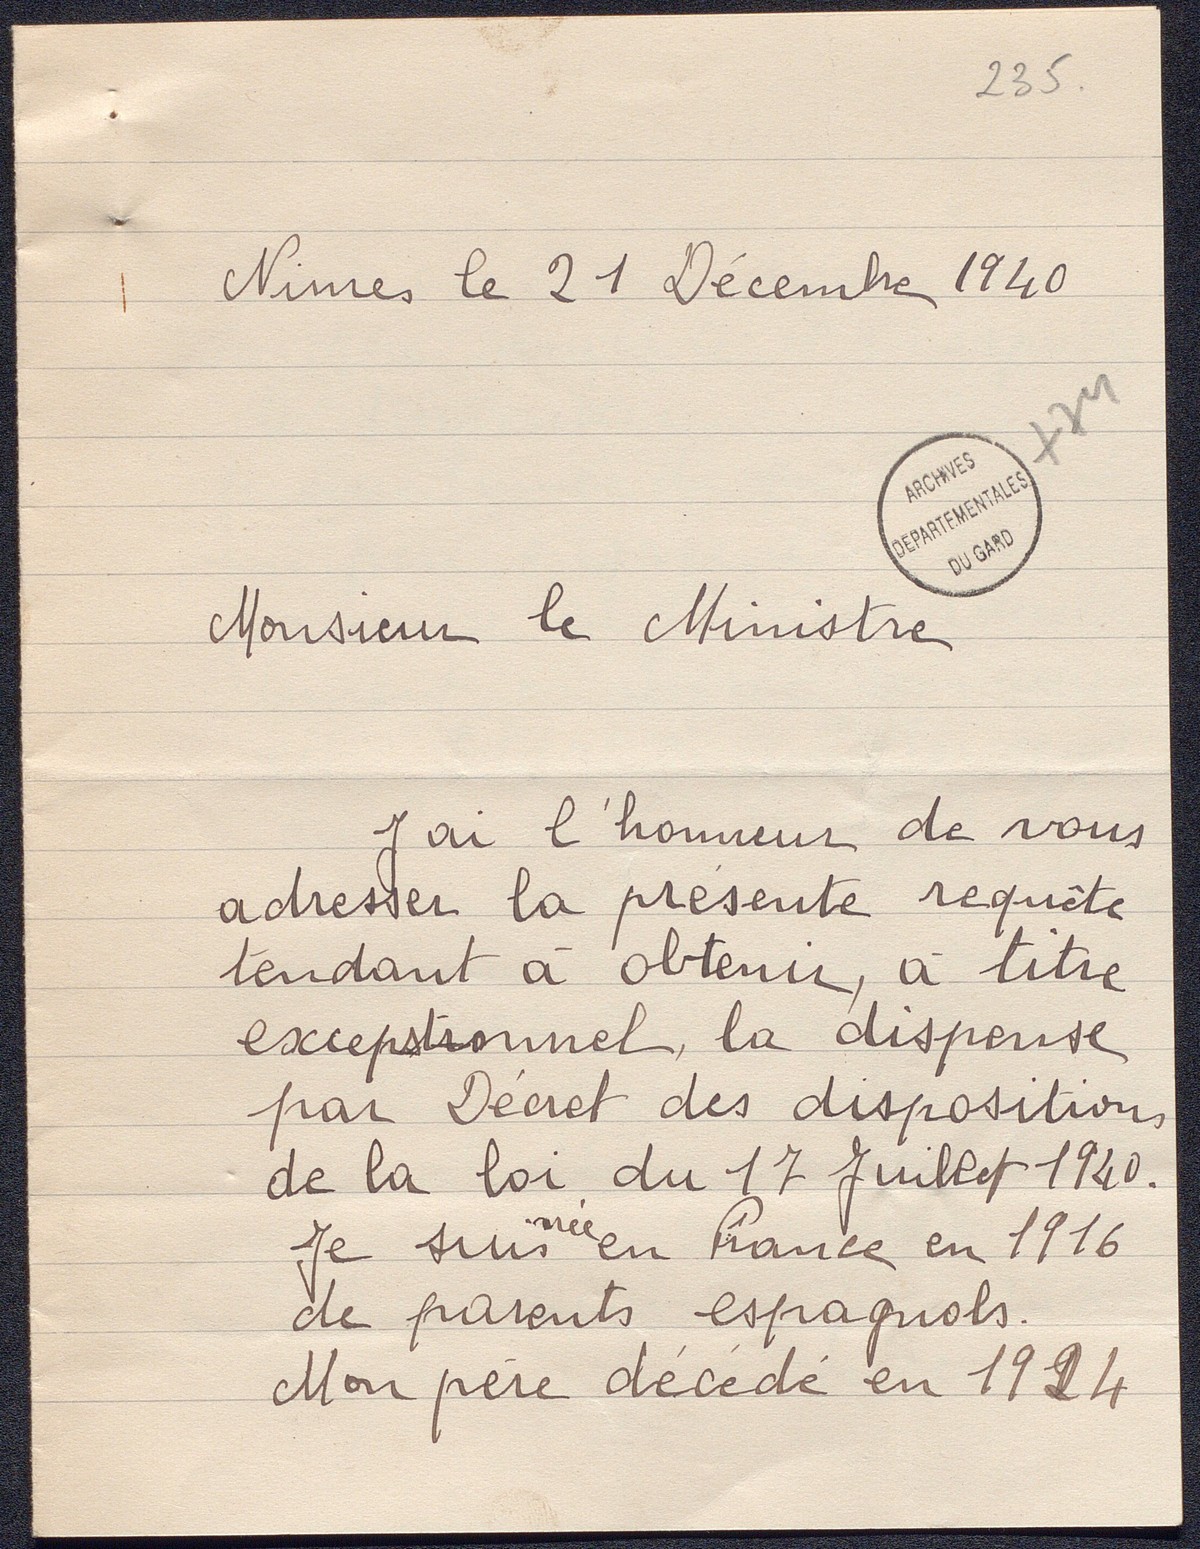 235.
Nimes le 21 Décembre 1940
ARCHIVES
DEPARTEMENTALES
DU GARD
Monsieur le Ministre
J'ai l'honneur de vous
adresser la présente requête
tendant à obtenir, à titre
exceptionnel, la dispense
par Décret des dispositions
de la loi du 17 Juillet 1940.
Je suis née en France en 1916
de parents espagnols.
Mon père décédé en 1924